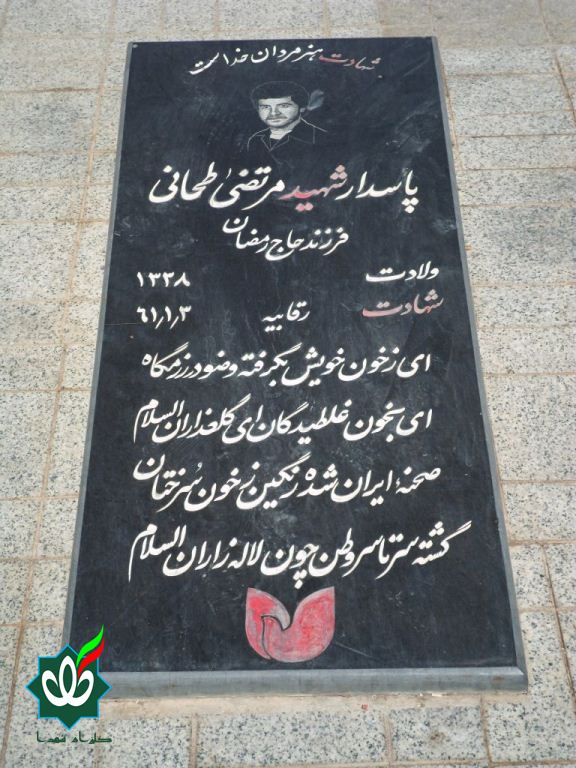 شهادت هنر مردان خداست
پاسدار شهید مرتضیٰ طحانی
فرزند حاج رمضان
ولادت ۱۳۳۸
شهادت رقابیه ۶۱٫۱٫۳
ای ز خون خویش بگرفته وضو در رزمگاه
ای بخون غلطیدگان ای گلعذاران السلام
صحنهٔ ایران شده رنگین ز خون سرختان
گشته سر تا سر وطن چون لاله زاران السلام
گلزار شهدا